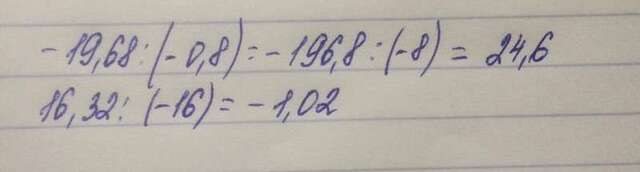 -19,68:(-0,8)=-196,8:(-8)=24,6
16,32:(-16)=-1,02